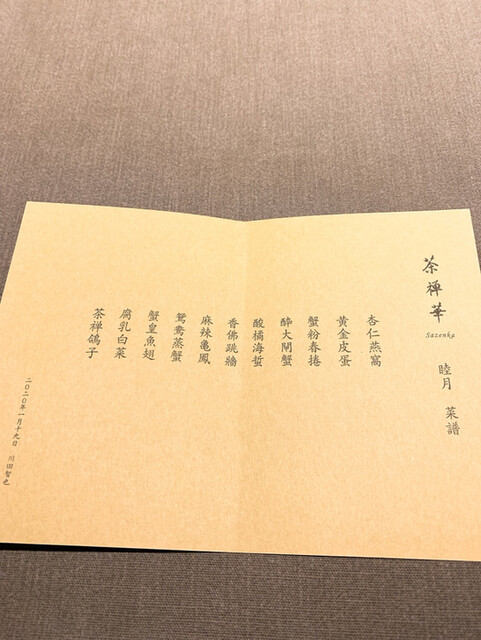 茶禅華
Sazenka
睦月 菜譜
杏仁燕窩
黄金皮蛋
蟹粉春捲
酔大閘蟹
酸橘海蜇
香佛跳牆
麻辣亀鳳
鴛鴦蒸蟹
蟹皇魚翅
腐乳白菜
茶禅鴿子
二〇二〇年一月十九日 川田智也